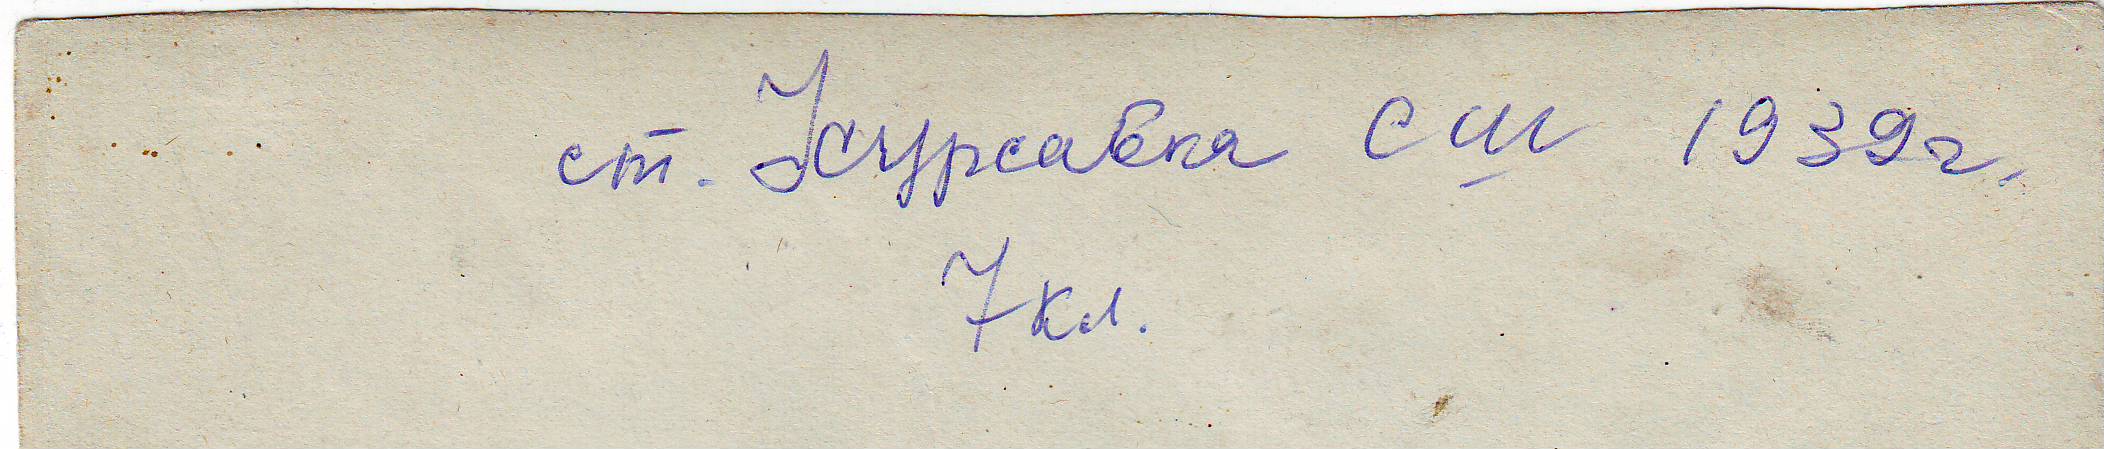 ст. Курсавка СШ 1939г.
7 кл.